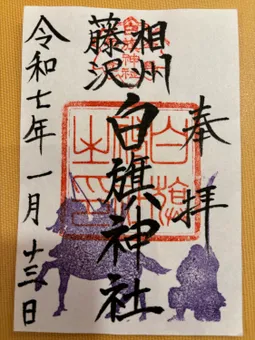 奉拝
相州
藤沢
白旗神社
令和七年一月十三日